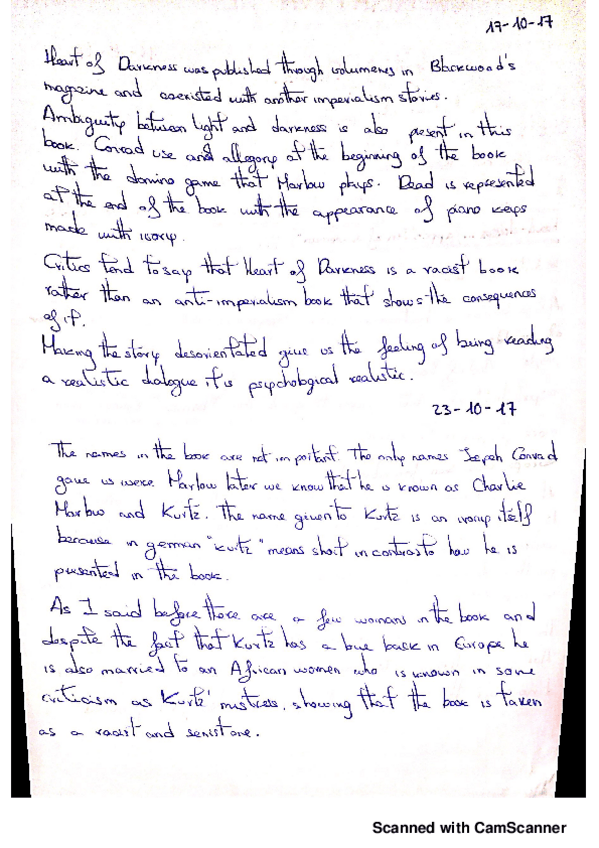 17-10-17
Heart of Darkness was published through volumenes in Blackwood's
magazine and coexisted with another imperialism stories.
Ambiguity between light and darkness is also present in this
book. Conrad use and allegory at the beginning of the book
with the domino game that Marlow plays. Dead is represented
at the end of the book with the appearance of piano keys
made with ivory.
Critics tend to say that Heart of Darkness is a racist book
rather than an anti-imperialism book that shows the consequences
of it.
Making the story desorientated give us the feeling of being reading
a realistic dialogue it is psychological realistic.
23-10-17
The names in the book are not important. The only names Joseph Conrad
gave us were Marlow later we know that he is known as Charlie
Marlow and Kurtz. The name given to Kurtz is an irony itself
because in german "kurtz" means short in contrast to how he is
presented in the book.
As I said before there are a few womans in the book and
despite the fact that Kurtz has a back in Europe he
is also married to an African women who is known in some
criticism as Kurtz' mistress, showing that the book is taken
as a racist and sexist one.
Scanned with CamScanner